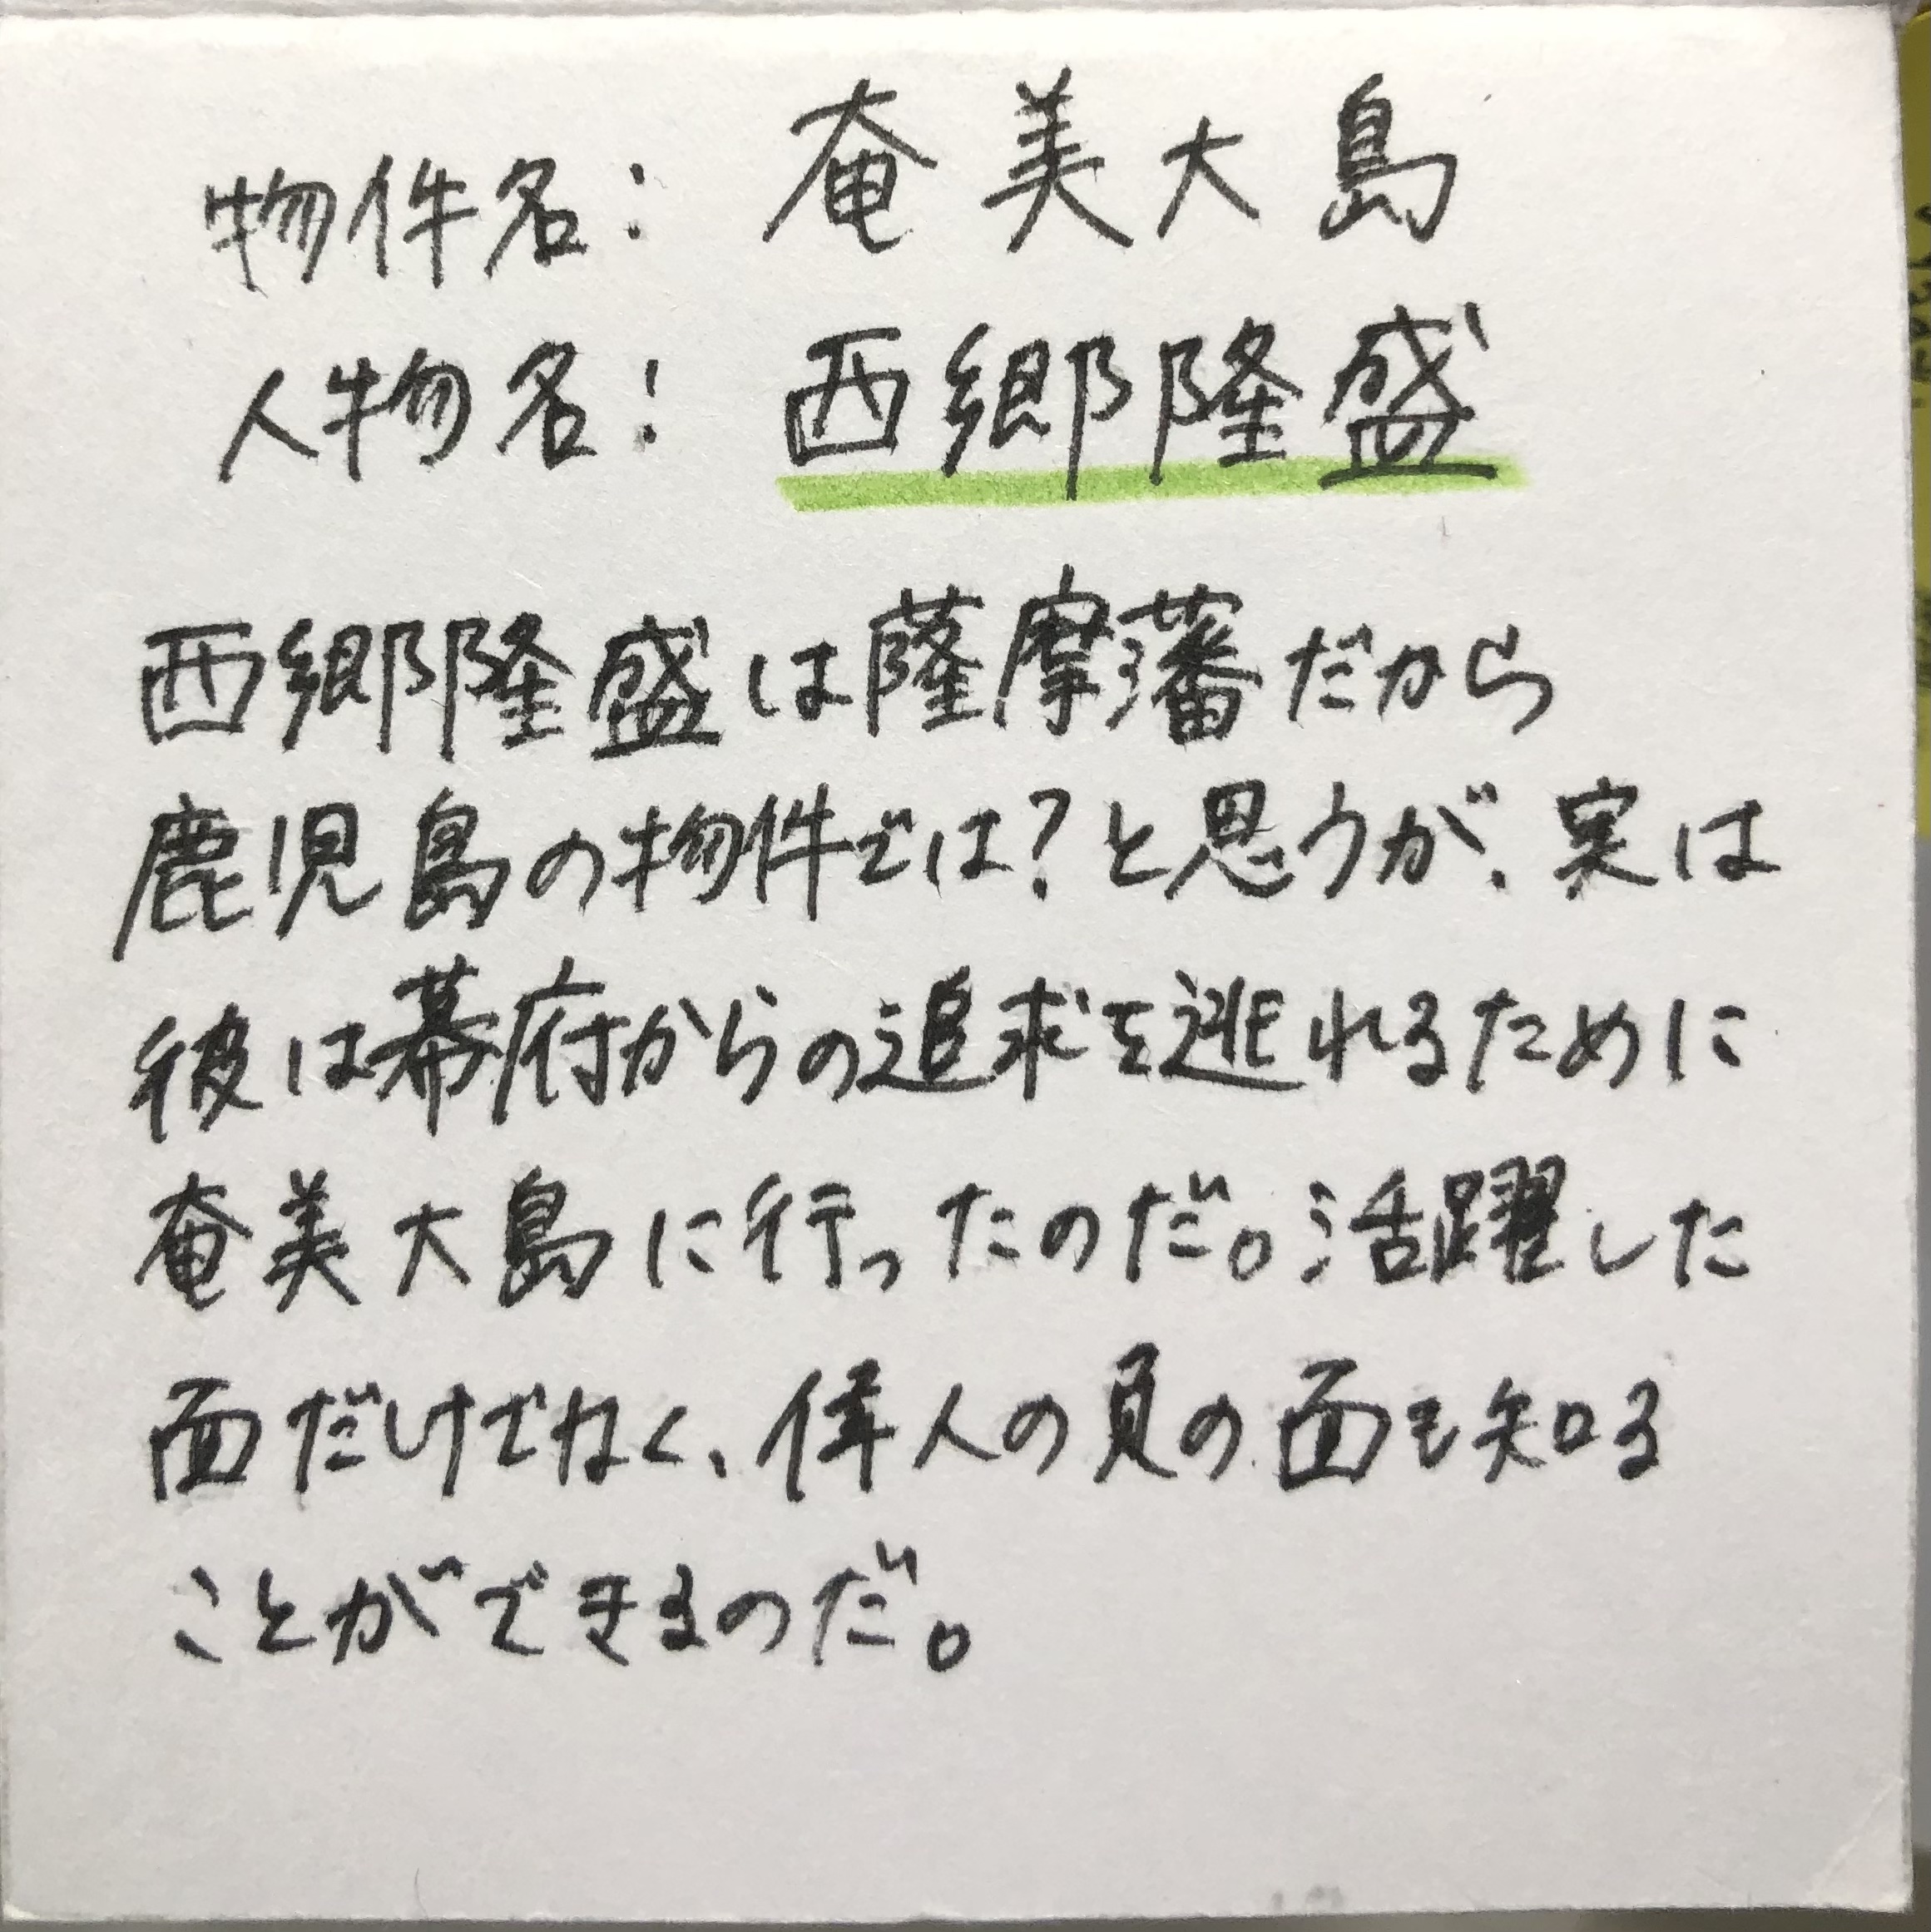 物件名: 奄美大島
人物名: 西郷隆盛
西郷隆盛は薩摩藩だから
鹿児島の物件では?と思うが、実は
彼は幕府からの追求を逃れるために
奄美大島に行ったのだ。活躍した
面だけでなく、偉人の負の面も知る
ことができるのだ。